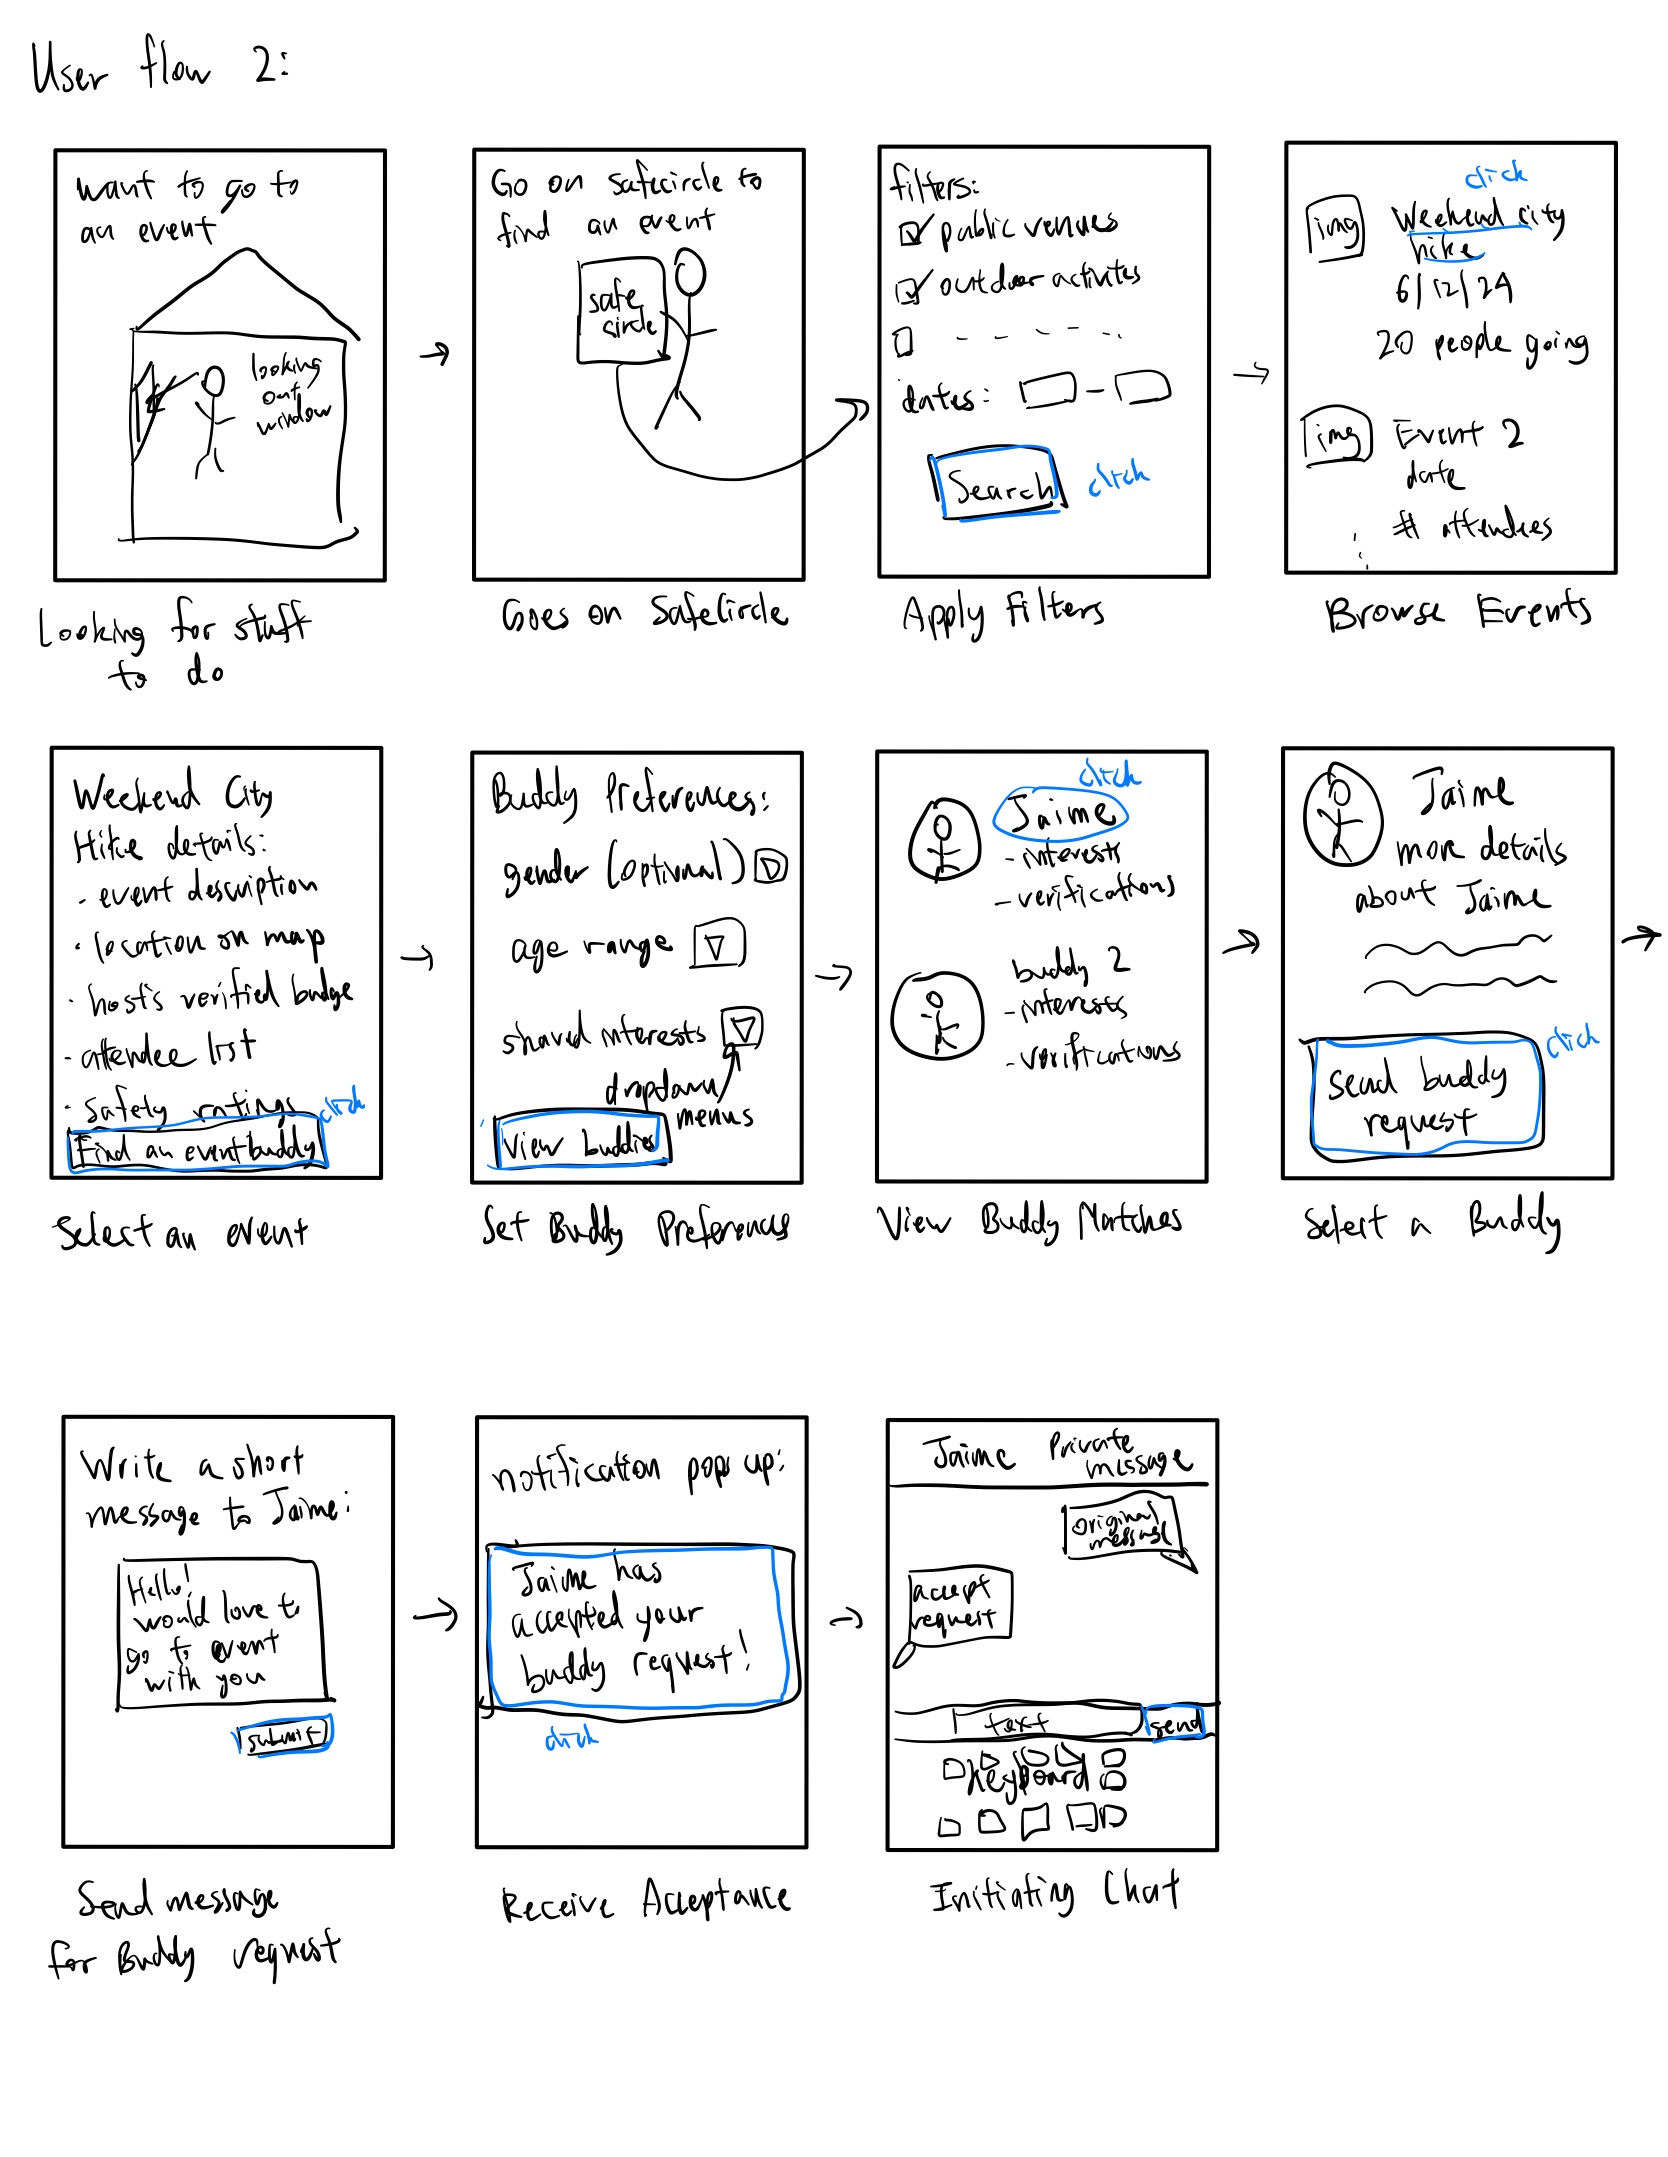 User flow 2:
want to go to
an event
looking
out
window
Looking for stuff
to do
Go on safecircle to
find an event
safe
circle
Goes on SafeCircle
filters:
public venues
outdoor activites
dates: -
Search
click
Apply Filters
click
img
Weekend city
hike
6/12/24
20 people going
img
Event 2
date
# attendees
Browse Events
Weekend City
Hike details:
· event description
· location on map
· host's verified badge
- attendee list
· safety ratings
click
Find an event buddy
Select an event
Buddy Preferences:
gender (optional)
age range
shared interests
dropdown
menus
View buddies
Set Buddy Preferences
click
Jaime
- interests
- verifications
buddy 2
- interests
- verifications
View Buddy Matches
Jaime
more details
about Jaime
click
send buddy
request
Select a Buddy
Write a short
message to Jaime:
Hello!
would love to
go to event
with you
submit
Send message
for Buddy request
notification pops up:
Jaime has
accepted your
buddy request!
click
Receive Acceptance
Jaime Private
message
original
message
accept
request
text
send
keyboard
Initiating Chat